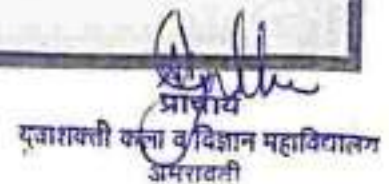 प्राचार्य
युवाशक्ती कला व विज्ञान महाविद्यालय
अमरावती